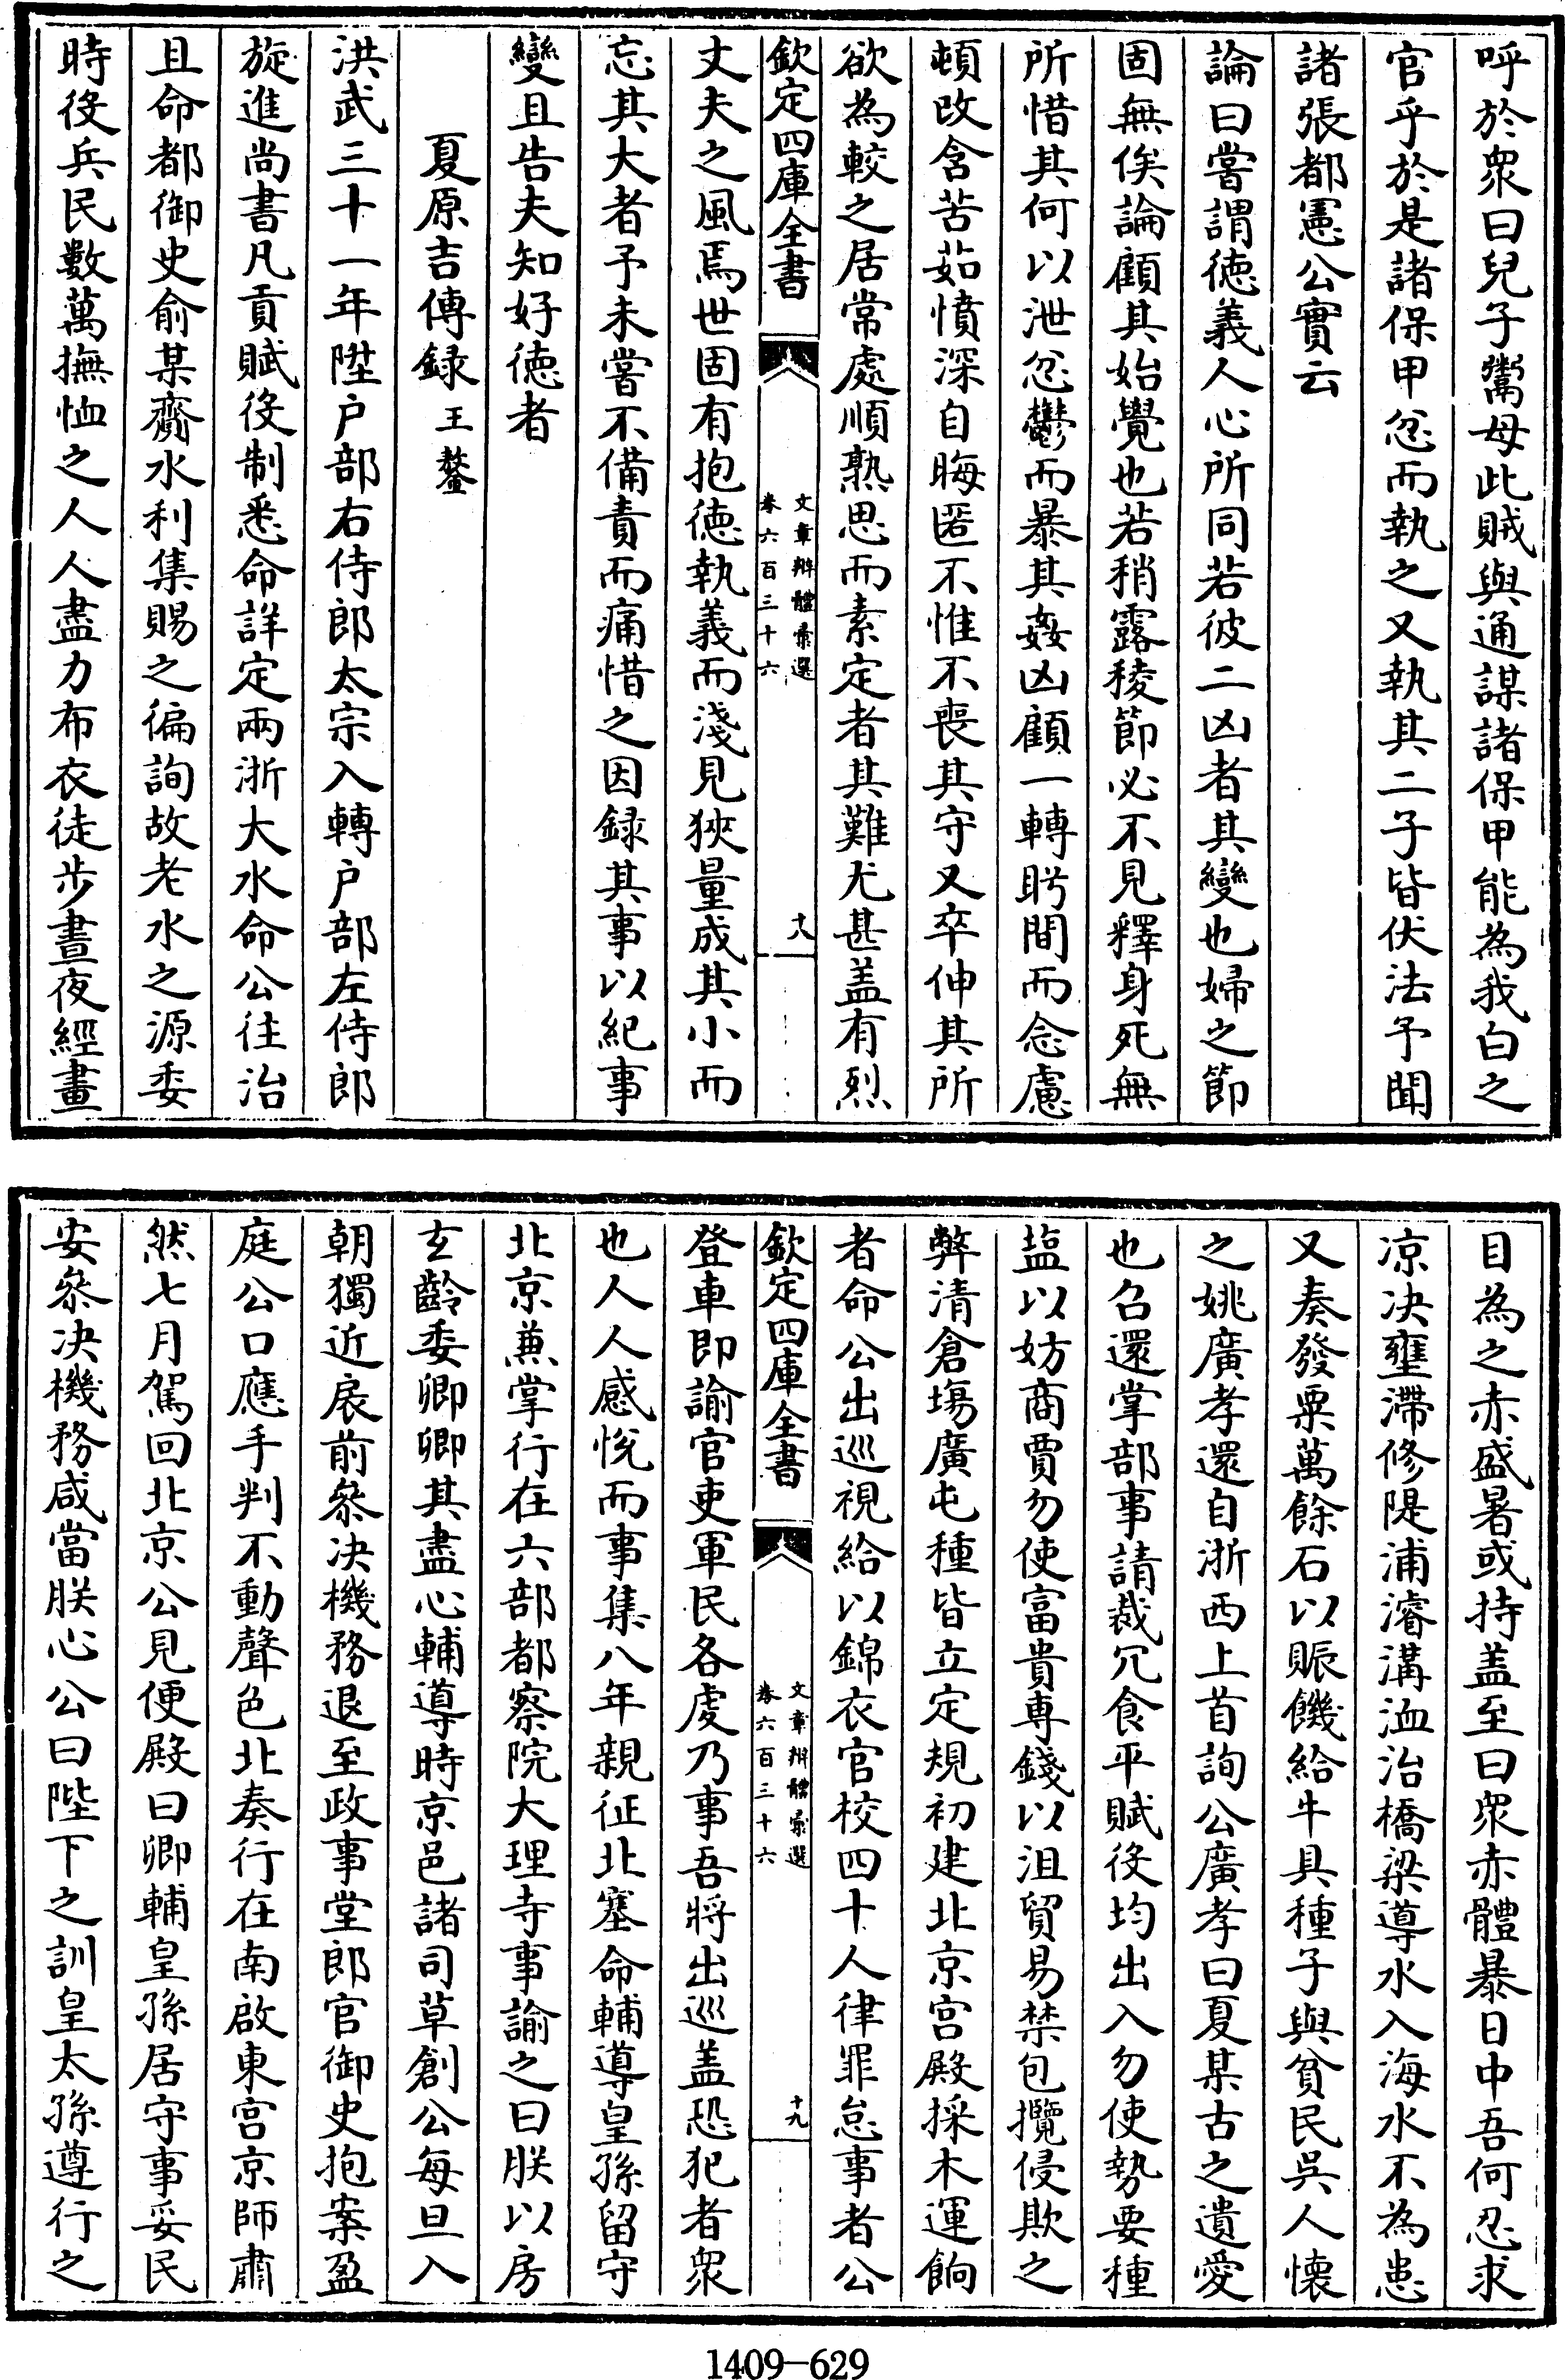 呼於衆曰兒子鬻母此賊與通謀諸保甲能為我白之
官乎於是諸保甲忿而執之又執其二子皆伏法予聞
諸張都憲公實云
論曰嘗謂徳義人心所同若彼二凶者其變也婦之節
固無俟論顧其始覺也若稍露稜節必不見釋身死無
所惜其何以泄忿鬱而暴其姦凶顧一轉眄間而念慮
頓改含苦茹憤深自晦匿不惟不喪其守又卒伸其所
欲為較之居常處順熟思而素定者其難尤甚盖有烈
欽定四庫全書
文章辨體彙選
卷六百三十六
十八
丈夫之風焉世固有抱徳執義而淺見狹量成其小而
忘其大者予未嘗不備責而痛惜之因録其事以紀事
變且告夫知好徳者
夏原吉傳録 王鏊
洪武三十一年陞户部右侍郎太宗入轉户部左侍郎
旋進尚書凡貢賦役制悉命詳定兩浙大水命公往治
且命都御史俞某齎水利集賜之徧詢故老水之源委
時役兵民數萬撫恤之人人盡力布衣徒步晝夜經畫
目為之赤盛暑或持盖至曰衆赤體暴日中吾何忍求
凉决壅滯修隄浦濬溝洫治橋梁導水入海水不為患
又奏發粟萬餘石以賑饑給牛具種子與貧民吳人懷
之姚廣孝還自浙西上首詢公廣孝曰夏某古之遺愛
也召還掌部事請裁冗食平賦役均出入勿使勢要種
塩以妨商賈勿使富貴専錢以沮貿易禁包攬侵欺之
弊清倉塲廣屯種皆立定規初建北京宫殿採木運餉
者命公出巡視給以錦衣官校四十人律罪怠事者公
欽定四庫全書
文章辨體彙選
卷六百三十六
十九
登車即諭官吏軍民各虔乃事吾將出巡盖恐犯者衆
也人人感悅而事集八年親征北塞命輔導皇孫留守
北京兼掌行在六部都察院大理寺事諭之曰朕以房
玄齡委卿卿其盡心輔導時京邑諸司草創公每旦入
朝獨近扆前叅决機務退至政事堂郎官御史抱案盈
庭公口應手判不動聲色北奏行在南啟東宫京師肅
然七月駕回北京公見便殿曰卿輔皇孫居守事妥民
安叅决機務咸當朕心公曰陛下之訓皇太孫遵行之
1409—629